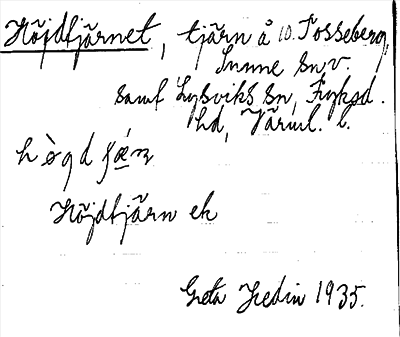 Höjdtjärnet, tjärn å 10. Fosseberg,
Sunne sn v.
samt Lysviks sn, Fryksd.
hd, Värml. l.
Höjdtjärn ek
Greta Hedin 1935.